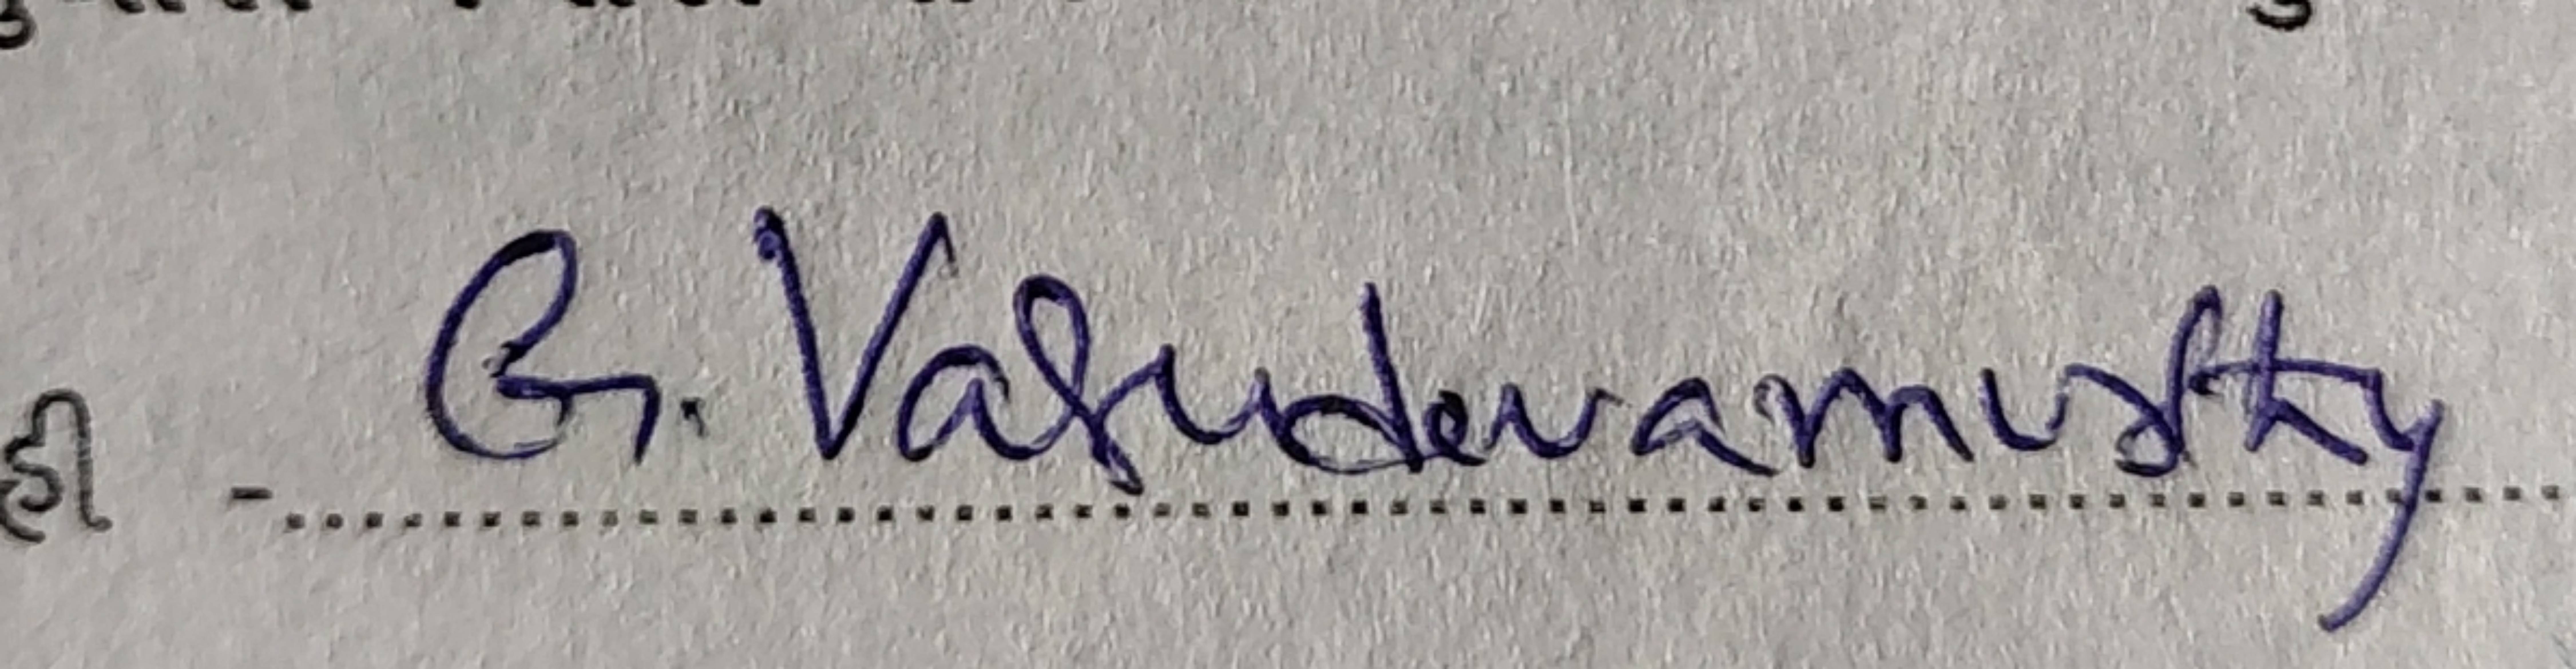 ही - G. Vasudevamurthy